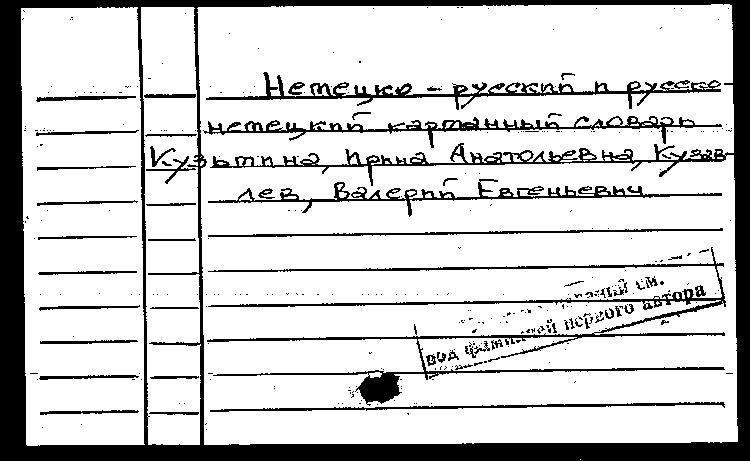 Немецко-русский и русско-
немецкий карманный словарь
Кузьмина, Ирина Анатольевна, Кузав-
лев, Валерий Евгеньевич
см.
под фамилией первого автора